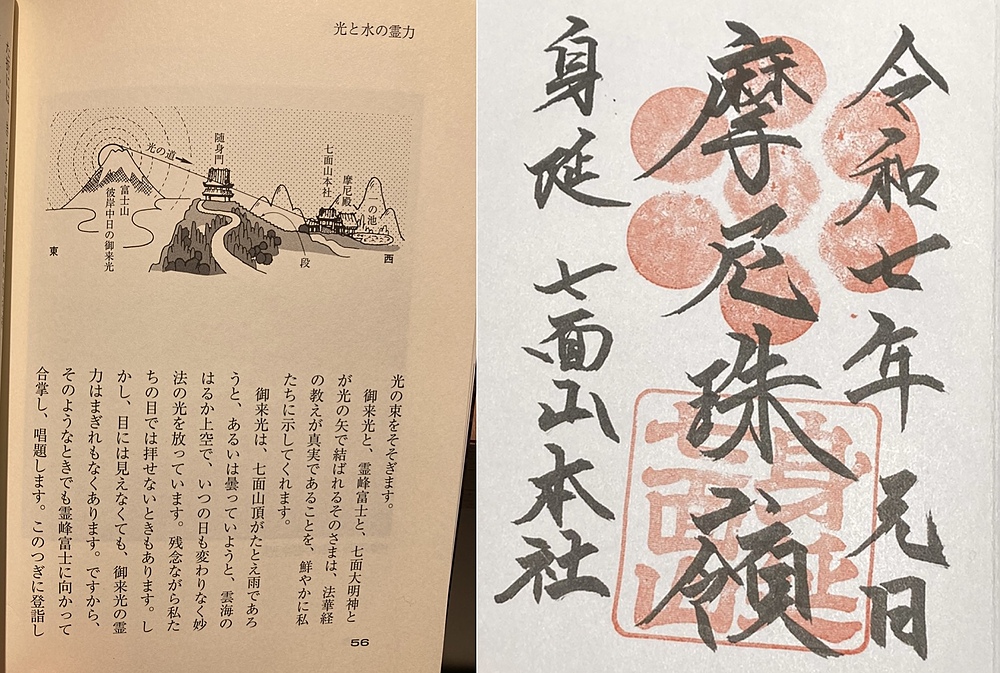 光と水の霊力
光の道
随身門
七面山本社
摩尼殿
一の池
富士山
彼岸中日の御来光
東
段
西
光の束をそそぎます。
御来光と、霊峰富士と、七面大明神と
が光の矢で結ばれるそのさまは、法華経
の教えが真実であることを、鮮やかに私
たちに示してくれます。
御来光は、七面山頂がたとえ雨であろ
うと、あるいは曇っていようと、雲海の
はるか上空で、いつの日も変わりなく妙
法の光を放っています。残念ながら私た
ちの目では拝せないときもあります。し
かし、目には見えなくても、御来光の霊
力はまぎれもなくあります。ですから、
そのようなときでも霊峰富士に向かって
合掌し、唱題します。このつぎに登詣し
56
令和七年元日
摩尼珠嶺
身延 七面山本社
身延
七面山